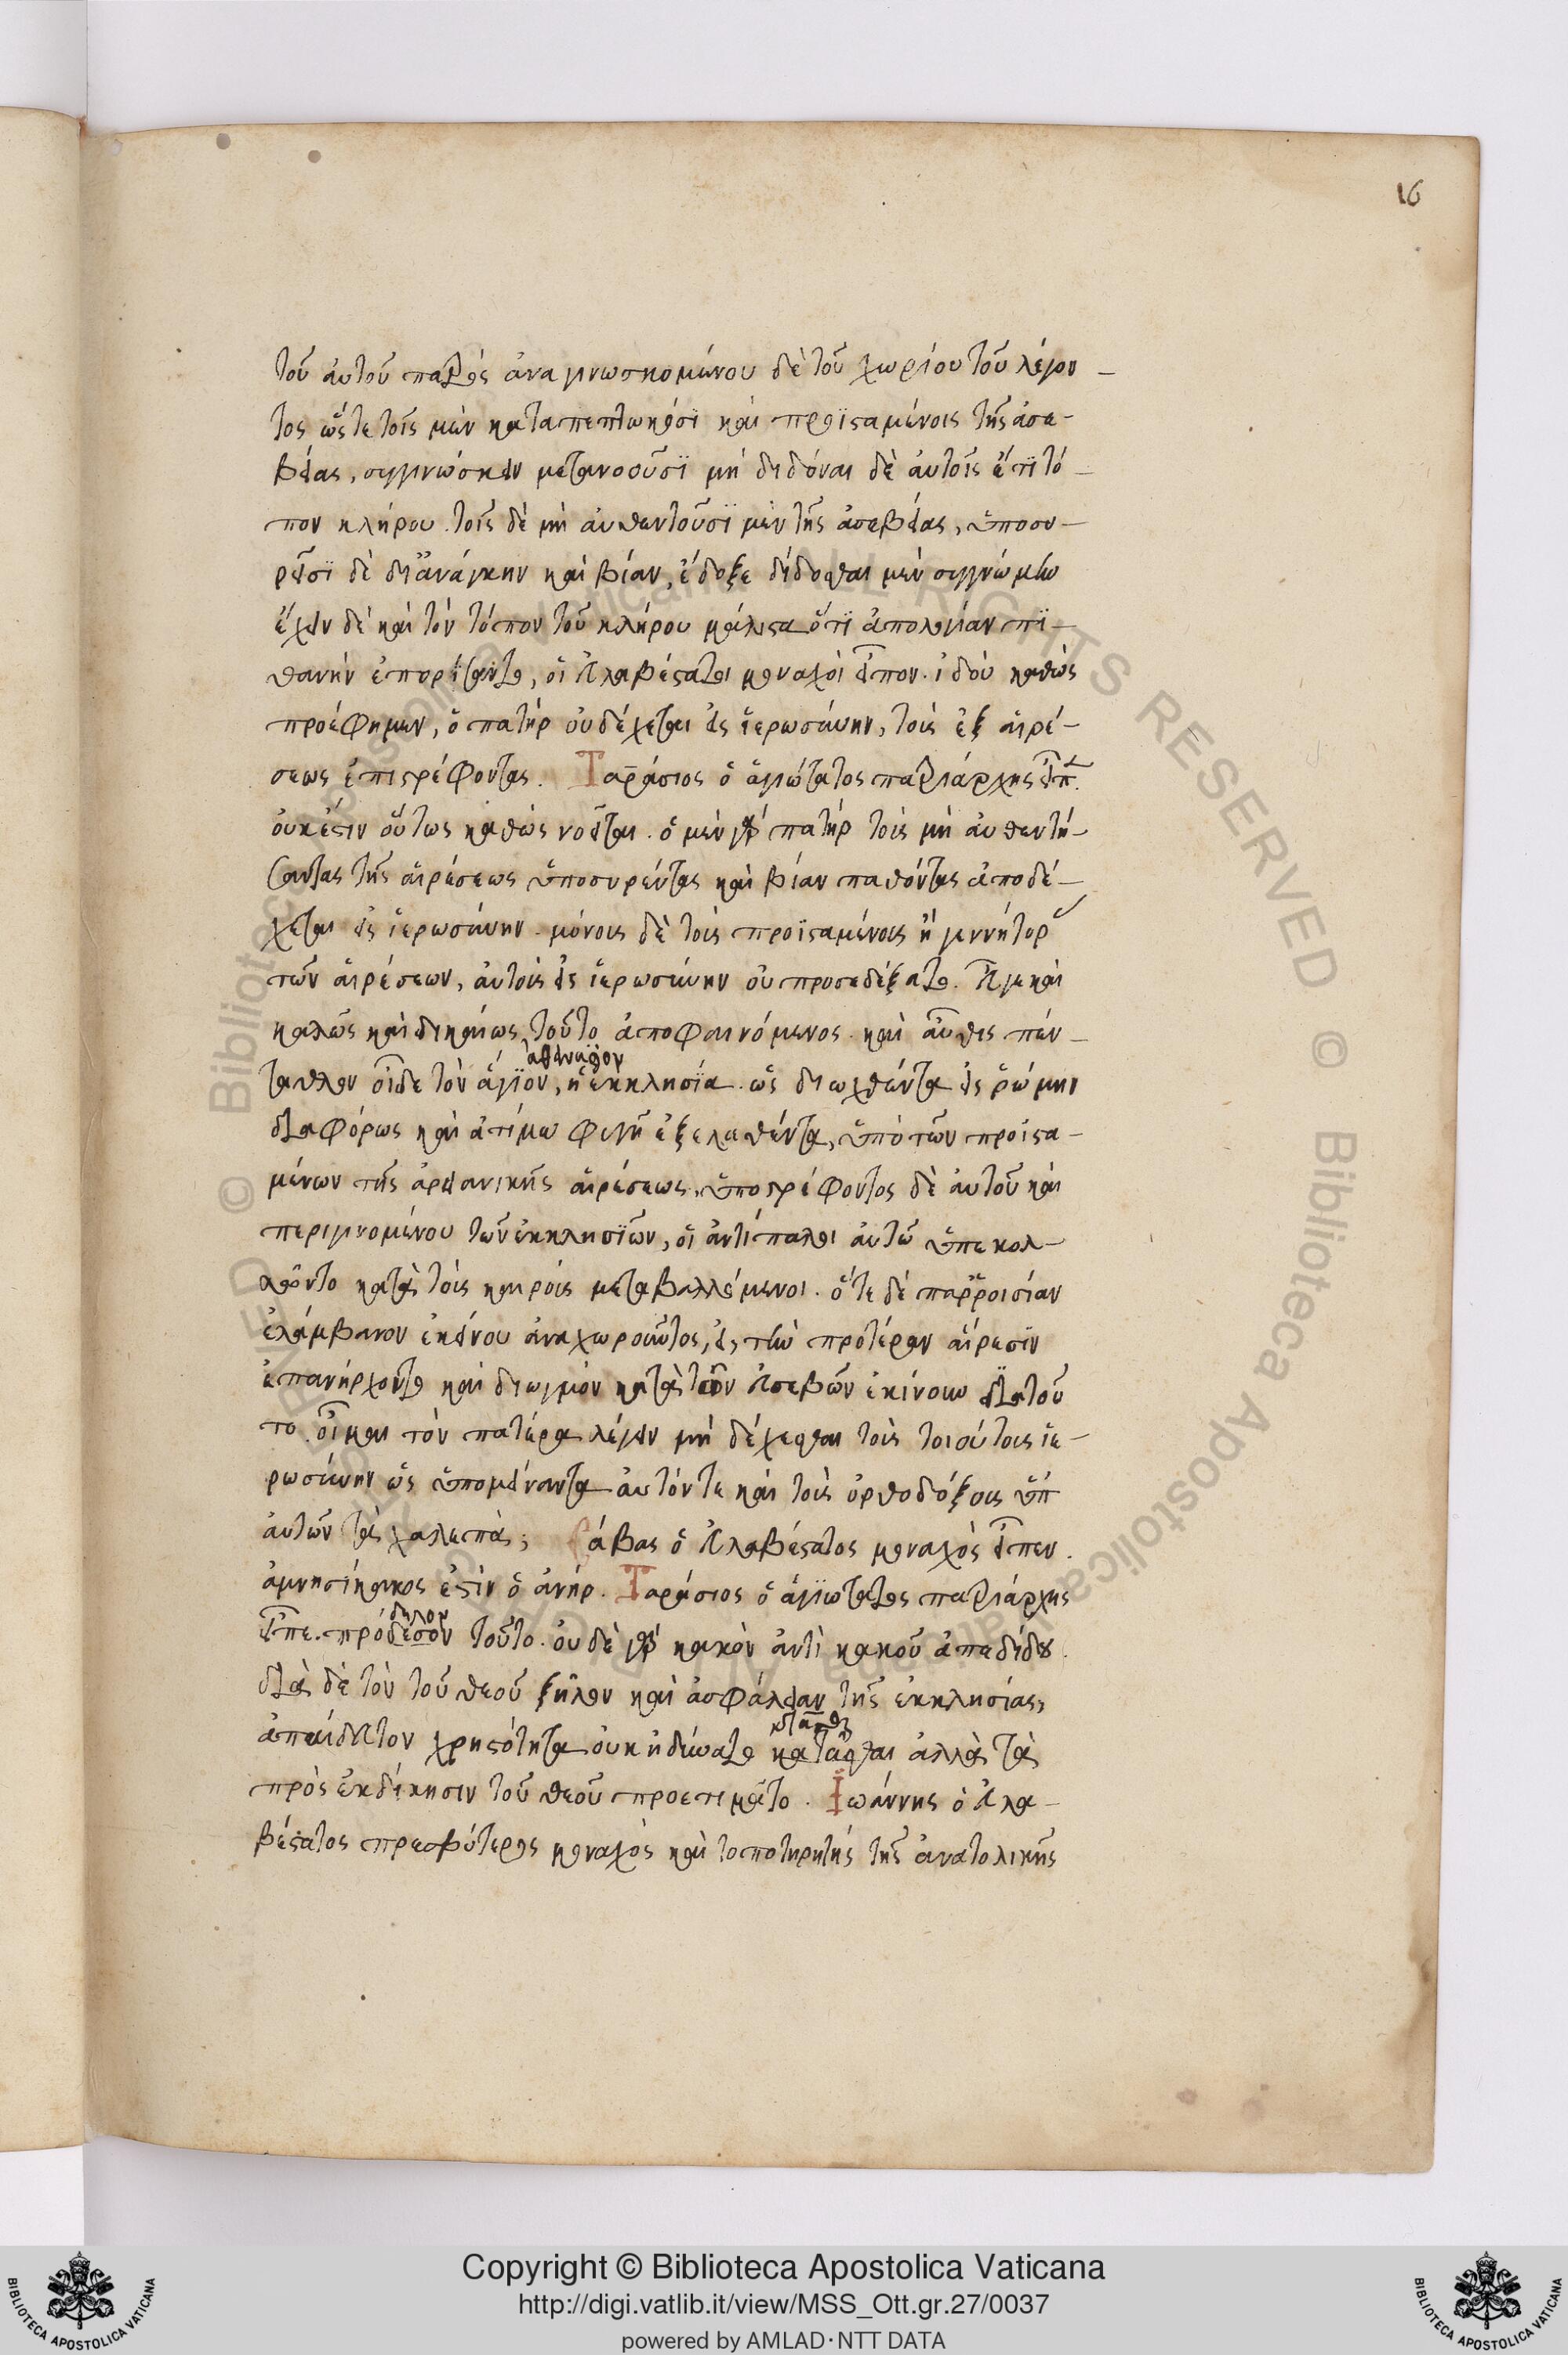 16
τοῦ αὐτοῦ πατρός ἀναγινωσκομένου δὲ τοῦ χωρίου τοῦ λέγον-
τος ὥστε τοῖς μὲν καταπεπτωκόσι καὶ προϊσταμένοις τῆς ἀσε-
βείας, συγγινώσκειν μετανοοῦσϊ μὴ διδόναι δὲ αὐτοῖς ἔτϊ τό-
πον κλήρου. τοῖς δὲ μὴ αὐθεντοῦσϊ μὲν τῆς ἀσεβείας, ὑποσυ-
ρεῖσϊ δὲ δι' ἀνάγκην καὶ βίαν, ἔδοξε δίδοσθαι μὲν συγγνώμην
ἔχειν δὲ καὶ τὸν τόπον τοῦ κλήρου μάλιστα ὅτϊ ἀπολογίαν πϊ-
θανὴν ἐπορίσαντο, οἱ εὐλαβέστατοι μοναχοὶ εἶπον. ἰδοὺ καθὼς
προέφημεν, ὁ πατὴρ οὐ δέχεται εἰς ἱερωσύνην, τοὺς ἐξ αἱρέ-
σεως ἐπιστρέφοντας. Ταράσιος ὁ ἁγιώτατος πατριάρχης εἶπ.
οὐκ ἔστιν οὕτως καθὼς νοεῖται. ὁ μὲν γὰρ πατὴρ τοὺς μὴ αὐθεντή-
σαντας τῆς αἱρέσεως ὑποσυρέντας καὶ βίαν παθόντας ἀποδέ-
χεται εἰς ἱερωσύνην. μόνους δὲ τοὺς προϊσταμένους ἢ γεννήτορ
τῶν αἱρέσεων, αὐτοὺς εἰς ἱερωσύνην οὐ προσεδέξατο. εὖγε καὶ
καλῶς καὶ δικαίως τοῦτο ἀποφαινόμενος. καὶ αὖθις πέν-
ἀθανάσιον
ταθλον οἶδε τὸν ἅγϊον, ἡ ἐκκλησϊα. ὡς διωχθέντα εἰς ῥώμην
διαφόρως καὶ ἀτίμω φυγῇ ἐξελαθέντα, ὑπὸ τῶν προϊστα-
μένων τῆς ἀρειανικῆς αἱρέσεως, ὑποστρέφοντος δὲ αὐτοῦ καὶ
περιγινομένου τῶν ἐκκλησϊῶν, οἱ ἀντίπαλοι αὐτῶ ὑπεκολ-
λοῦντο κατὰ τοὺς καιροὺς μεταβαλλόμενοι. ὅτε δὲ παρροισίαν
ἐλάμβανον ἐκείνου ἀναχωροῦντος, εἰς τὴν προτέραν αἵρεσϊν
ἐπανήρχοντο καὶ διωγμὸν κατὰ τῶν εὐσεβῶν ἐκίνουν διατοῦ
το οἶμαι τὸν πατέρα λέγειν μὴ δέχεσθαι τοὺς τοιούτους ἱε-
ρωσύνην ὡς ὑπομείναντα αὐτόν τε καὶ τοὺς ὀρθοδόξους ὑπ
αὐτῶν τὰ χαλεπὰ; Σάβας ὁ εὐλαβέστατος μοναχὸς εἶπεν.
ἀμνησίκακος ἐστὶν ὁ ἀνήρ. Ταράσιος ὁ ἁγϊώτατος πατριάρχης
δηλον
εἶπε. πρόδεσον τοῦτο. οὐδὲ γὰρ κακὸν ἀντὶ κακοῦ ἀπεδίδου.
διὰ δὲ τὸν τοῦ θεοῦ ζῆλον καὶ ἀσφάλειαν τῆς ἐκκλησίας,
ἀπαίδευτον χρηστότητα οὐκ ἠδύνατο κατᾶσθαι ἀλλὰ τὰ
πρὸς ἐκδίκησιν τοῦ θεοῦ προετιμᾶτο. Ἰωάννης ὁ εὐλα-
βέστατος πρεσβύτερος μοναχὸς καὶ τοποτηρητής τῆς ἀνατολικῆς
© Biblioteca Apostolica Vaticana ALL RIGHTS RESERVED
Copyright © Biblioteca Apostolica Vaticana
http://digi.vatlib.it/view/MSS_Ott.gr.27/0037
powered by AMLAD·NTT DATA
BIBLIOTECA APOSTOLICA VATICANA
BIBLIOTECA APOSTOLICA VATICANA